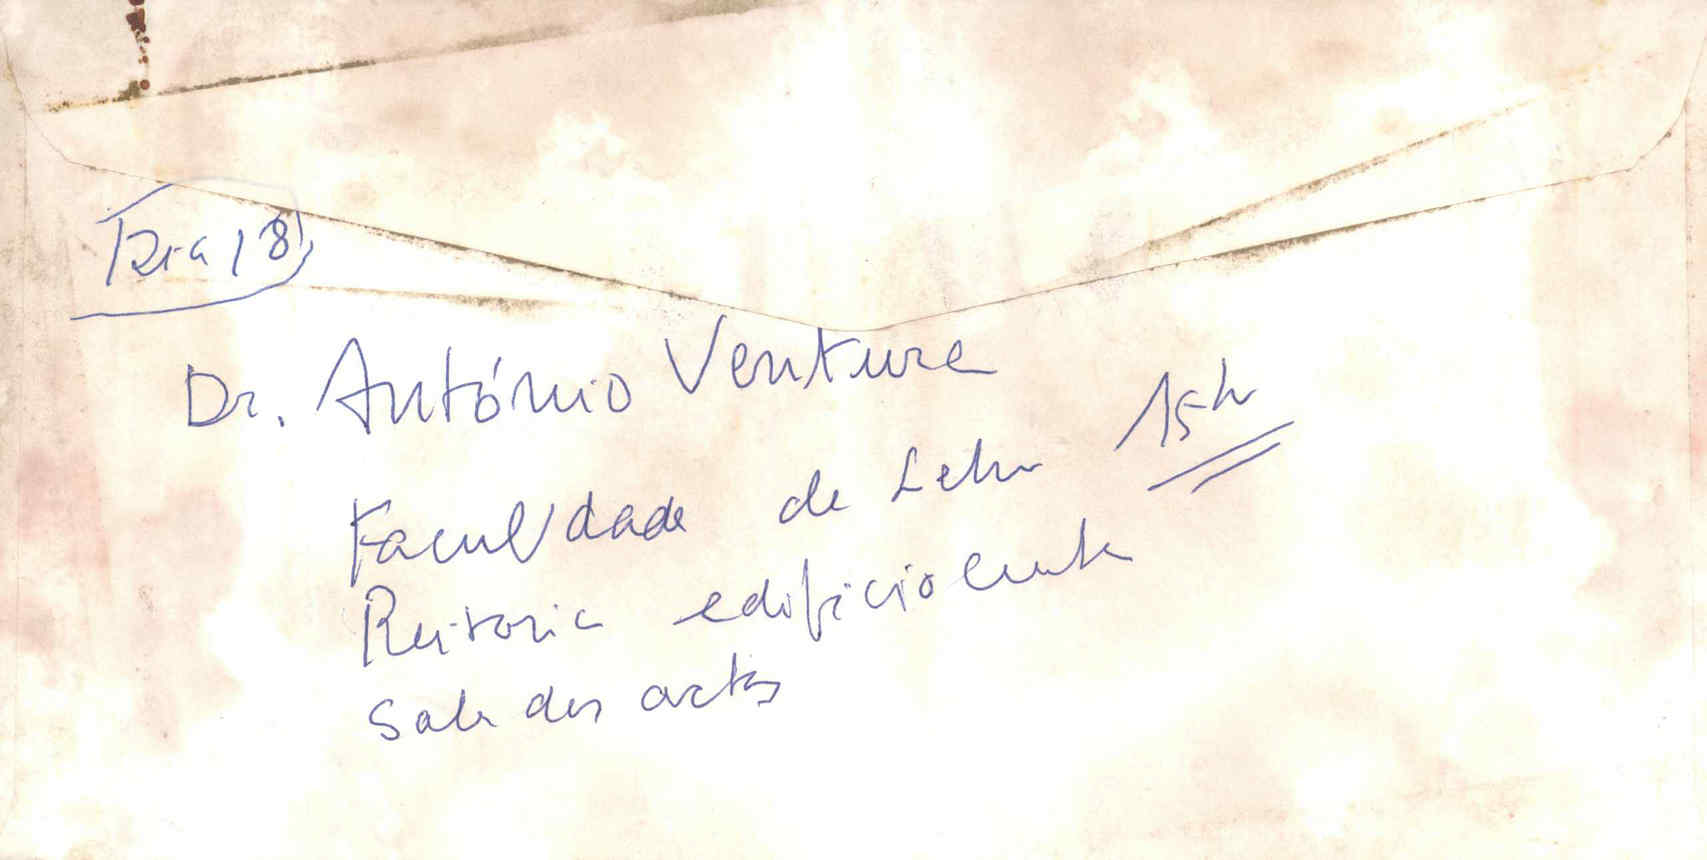 Dia 18
Dr. António Ventura
15h
Faculdade de Letras
Reitoria edificio central
Sala dos actos